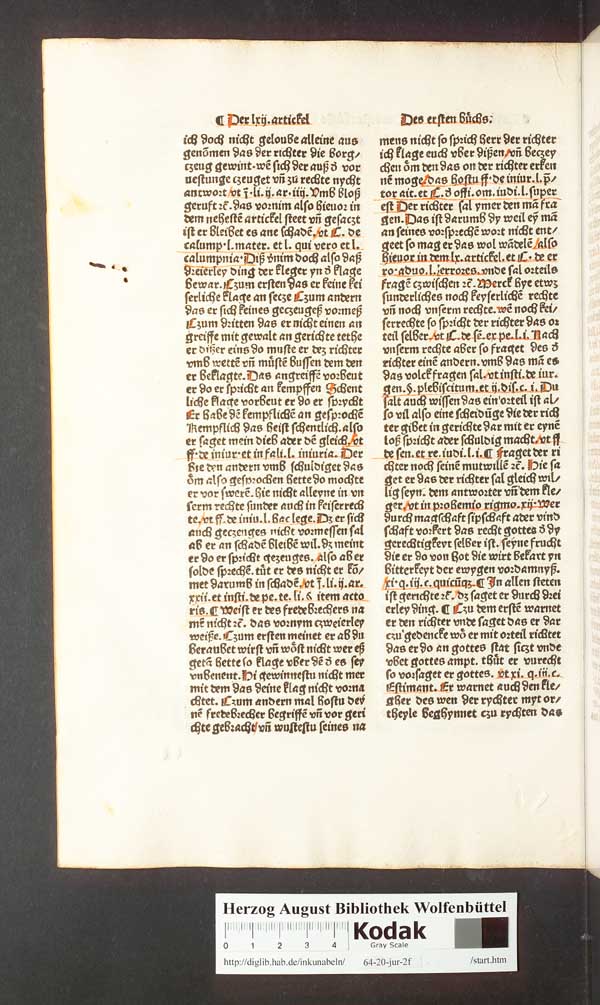 ¶ Der lxij. artickel
Des ersten bůchs.
ich doch nicht geloube alleine aus
genōmen das der richter die borg⸗
czeug gewint. wē sich der auß ď vor
uestunge czeuget vñ zu rechte nycht
antwort vt ī. li. ij. ar. iiij. Vmb bloß
geruft rē. das vornim also hieuor in
dem nehestē artickel steet vñ gesaczt
ist er bleibet es ane schadē / vt C. de
calump. l. mater. et l. qui vero et l.
calumpnia. Diß v̓nim doch also daß
dreierley ding der kleger yn ď klage
bewar. Czum ersten das er keine kei
serliche klage an secze Czum andern
das er sich keines geczeugeß vormeß
Czum dritten das er nicht einen an
greiffe mit gewalt an gerichte tethe
er dißer eins do muste er dez richter
vmb wettē vñ můstē bussen dem den
er beklagte. Das angreiffē vorbeut
er do er spricht an kempffen Schent
liche klage vorbeut er do er sprycht
Er habe dē kempflichē an gesprochē
Kempflich das heist schentlich. also
er saget mein dieb ader dē gleich / vt
ff. de iniur. et in fali. l. iniuria. Der
hie den andern vmb schuldiget das
ōm also gesprochen hette do mochte
er vor swerē. hie nicht alleyne in vn
serm rechte sunder auch in keiserrech
te / vt ff. de iniu. l. hac lege. Dz er sich
auch geczeuges nicht vormessen sal
ab er an schadē bleibē wil. dz meint
er do er spricht gezeuges. Also ab er
solde sprechē. tůt er des nicht er kō⸗
met darumb in schadē / vt ī. li. ij. ar.
xxii. et insti. de pe. te. li. § item acto
ris. ¶ Weist er des fredebrechers na
mē nicht rē. das vornym czweierley
weiße. Czum ersten meinet er ab du
beraubet wirst vñ wōst nicht wer eß
getā hette so klage vber dē ď es sey
vnbenent. Hi gewinnestu nicht mer
mit dem das deine klag nicht vorna
chtet. Czum andern mal hostu dey
nē fredebrecher begriffē vñ vor geri
chte gebracht / vñ wustestu seines na
mens nicht so sprich herr der richter
ich klage euch vber dißen / vñ beczey
chen ōm den das on der richter erken
nē moge / das hostu ff. de iniur. l. p̄⸗
tor ait. et C. ď offi. om. iudi. l. super
est Der richter sal ymer den mā fra
gen. Das ist darumb dy weil ey̌ mā
an seines vorsprechē wort nicht ent⸗
geet so mag er das wol wādelē / also
hieuor in dem lx. artickel. et C. de er
ro. aduo. l. i. errores. vnde sal orteils
fragē czwischen rē. Merck hye etwz
sunderliches noch keyserlichē rechte
vñ noch vnserm rechte. wē noch kei⸗
serrechte so spricht der richter das or
teil selber / vt C. de sē. ex pe. l. i. Nach
vnserm rechte aber so fraget des ď
richter einē andern. vmb das mā es
das volck fragen sal / vt insti. de iur.
gen. §. plebiscitum. et ij. dis. c. i. Du
salt auch wissen das ein orteil ist al⸗
so vil also eine scheidūge die der rich
ter gibet in gerichte dar mit er eynē
loß spricht ader schuldig macht / vt ff
de sen. et re. iudi. l. i. ¶ Fraget der ri
chter noch seinē mutwillē rē. Hie sa
get er das der richter sal gleich wil⸗
lig seyn. dem antworter vñ dem kle⸗
ger / vt in prohemio rigmo. xij. Wer
durch magschaft sipschaft ader vind
schaft vorkert das recht gottes ď dy
gerechtigkeyt selber ist. seyne frucht
die er do von hot die wirt bekart yn
bitterkeyt der ewygen vordamnyß.
xi. q. iij. c. quicūqz. ¶ In allen steten
ist gerichte rē. dz saget er durch drei
erley ding. ¶ Czu dem erstē warnet
er den richter vnde saget das er dar
czu gedencke wō er mit orteil richtet
das er do an gottes stat siczt vnde
vbet gottes ampt. thůt er vnrecht
so vorsaget er gottes. vt xi. q. iij. c.
Estimant. Er warnet auch den kle⸗
gher des wen der rychter myt or⸗
theyle beghynnet czu rychten das
Herzog August Bibliothek Wolfenbüttel
0 1 2 3 4
Kodak
Gray Scale
http://diglib.hab.de/inkunabeln/ 64-20-jur-2f /start.htm